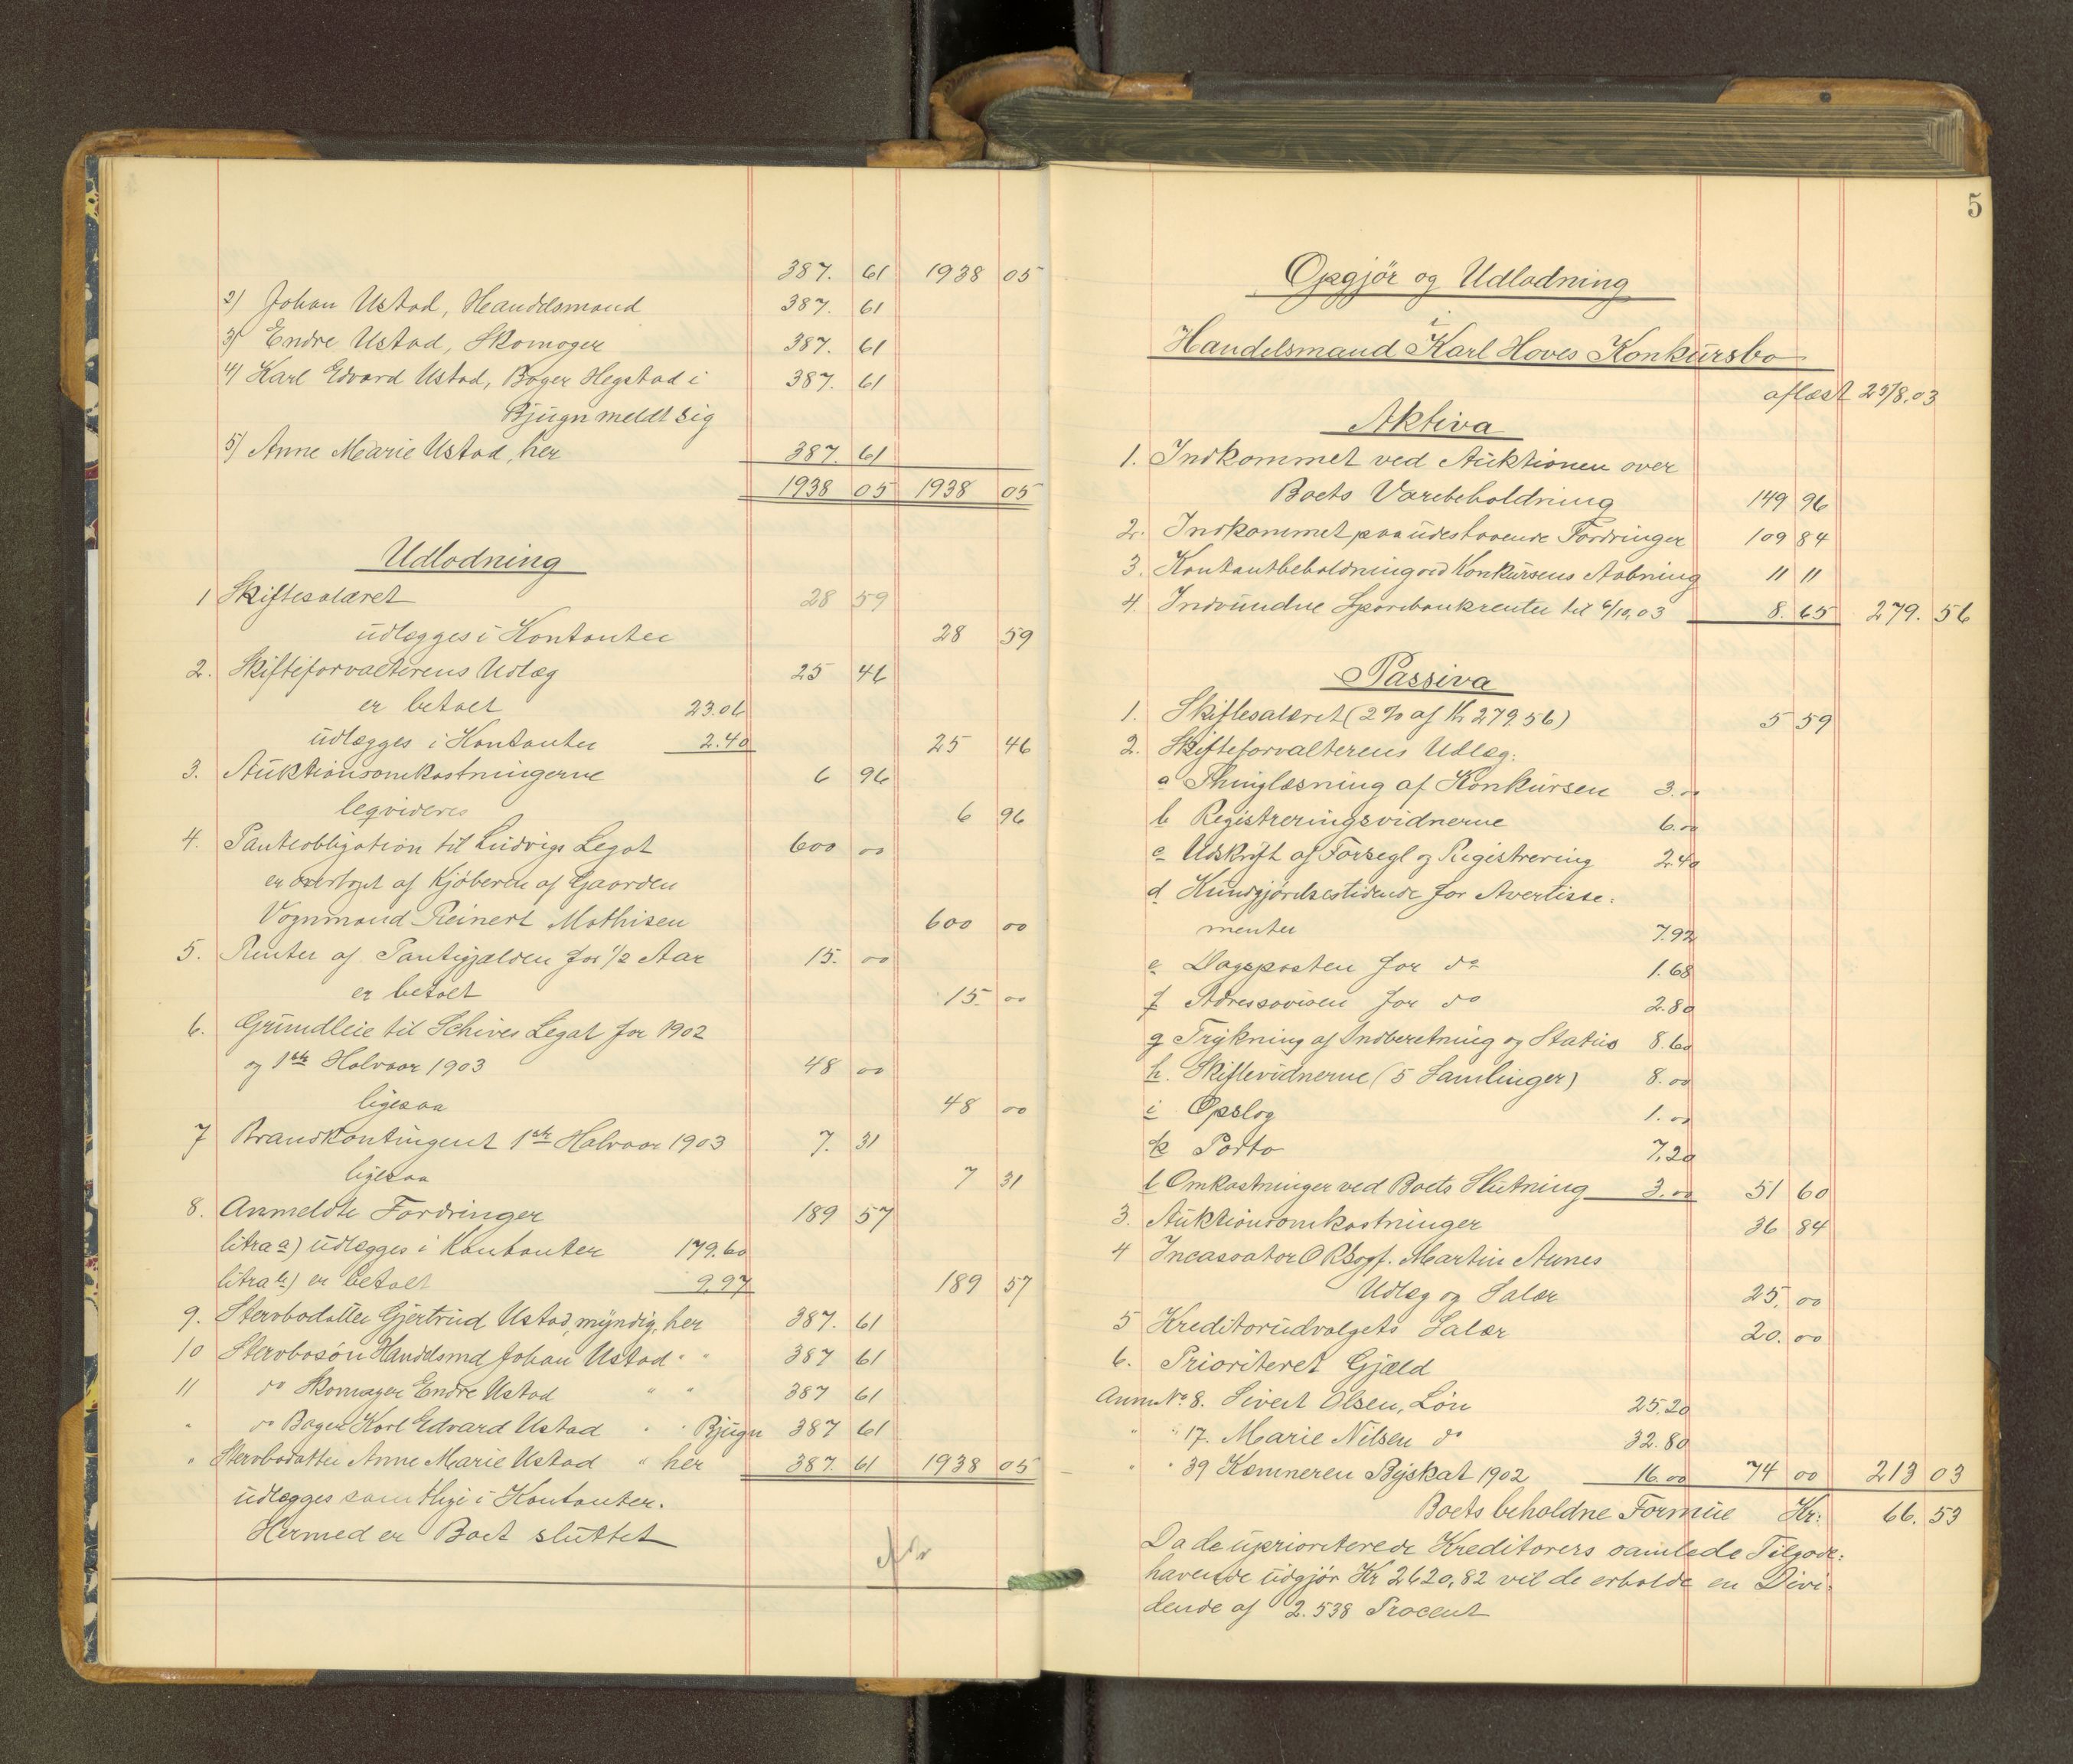 387. 61 1938 05
2) Johan Ustad, Handelsmand 387. 61
3) Endre Ustad, Skomager 387. 61
4) Karl Edvard Ustad, Bager Hegstad i 387. 61
Bjugn meldt sig
5) Anne Marie Ustad, her 387. 61
1938 05 1938 05
Udlodning
1 Skiftesalæret 28 59
udlægges i Kontanter 28 59
2. Skifteforvalterens Udlæg 25 46
er betalt 23.06
udlægges i Kontanter 2.40 25 46
3. Auktionsomkostningerne 6 96
leqvideres 6 96
4. Panteobligation til Ludvigs Legat 600 00
er overtaget af Kjøberen af Gaarden
Vognmand Reinert Mathisen 600 00
5. Renter af Pantegjælden for 1/2 Aar 15. 00
er betalt 15. 00
6. Grundleie til Schives Legat for 1902
og 1ste Halvaar 1903 48 00
ligesaa 48 00
7 Brandkontingent 1ste Halvaar 1903 7. 31
ligesaa 7 31
8. Anmeldte Fordringer 189 57
litra a) udlægges i Kontanter 179.60
litra b) er betalt 9.97 189 57
9. Stervbodatter Gjertrud Ustad, myndig, her 387. 61
10 Stervbosøn Handelsmd Johan Ustad " " 387 61
11 do Skomager Endre Ustad " " 387 61
" do Bager Karl Edvard Ustad " " Bjugn 387 61
" Stervbodatter Anne Marie Ustad " her 387. 61 1938 05
udlægges samtlige i Kontanter.
Hermed er Boet sluttet
5
Opgjör og Udlodning
i
Handelsmand Karl Hoves Konkursbo
aflæst 25/8.03
Aktiva
1. Indkommet ved Auktionen over
Boets Varebeholdning 149 96
2. Indkommet paa udestaaende Fordringer 109 84
3. Kontantbeholdning ved Konkursens Aabning 11 11
4. Indvundne Sparebankrenter til 6/10,03 8. 65 279. 56
Passiva
1. Skiftesalæret (2% af Kr 279.56) 5 59
2. Skifteforvalterens Udlæg:
a Thinglæsning af Konkursen 3.00
b Registreringsvidnerne 6.00
c Udskrift af Forsegl og Registrering 2.40
d Kundgjørelsestidende for Avertisse:
menter 7.92
e Dagsposten for do 1.68
f Adresseavisen for do 2.80
g Trykning af Indberetning og Status 8.60
h. Skiftevidnerne (5 Samlinger) 8.00
i Opslag 1.00
k Porto 7.20
l Omkostninger ved Boets Slutning 3.00 51 60
3. Auktionsomkostninger 36 84
4 Incassator O R Sagf. Martin Aunes
Udlæg og Salær 25. 00
5 Kreditorudvalgets Salær 20. 00
6. Prioriteret Gjæld
Anm. No 8. Sivert Olsen, Løn 25.20
" " 17. Marie Nilsen do 32.80
" " 39 Kæmneren Byskat 1902 16.00 74 00 213 03
Boets beholdne Formue Kr: 66. 53
Da de uprioriterede Kreditorers samlede Tilgode:
havende udgjör Kr 2620,82 vil de erholde en Divi:
dende af 2.538 Procent